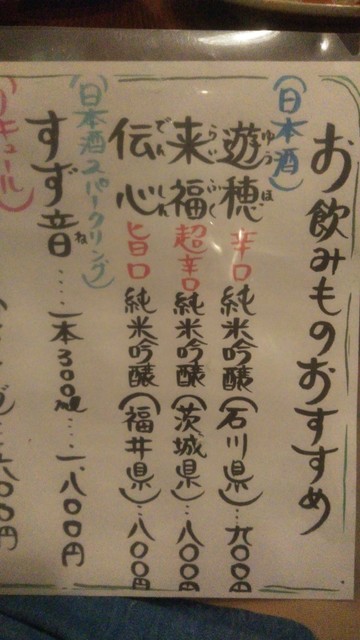 お飲みものおすすめ
(日本酒)
遊穂 ゆうほ 辛口 純米吟醸(石川県)…九〇〇円
来福 らいふく 超辛口 純米吟醸(茨城県)…八〇〇円
伝心 でんしん 旨口 純米吟醸(福井県)…八〇〇円
(日本酒スパークリング)
すず音 ね …一本300ml…一、八〇〇円
リキュール)